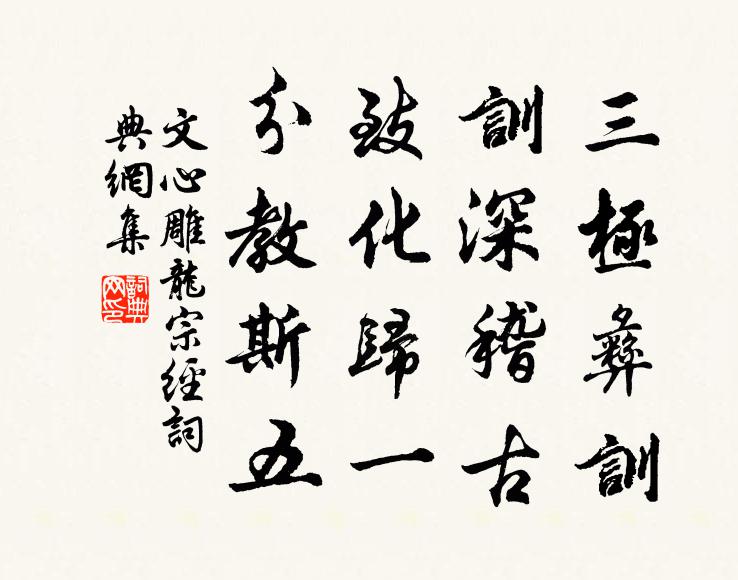 三極彝訓
訓深稽古
致化歸一
分教斯五
文心雕龍宗經詞
典網集
詞典網印